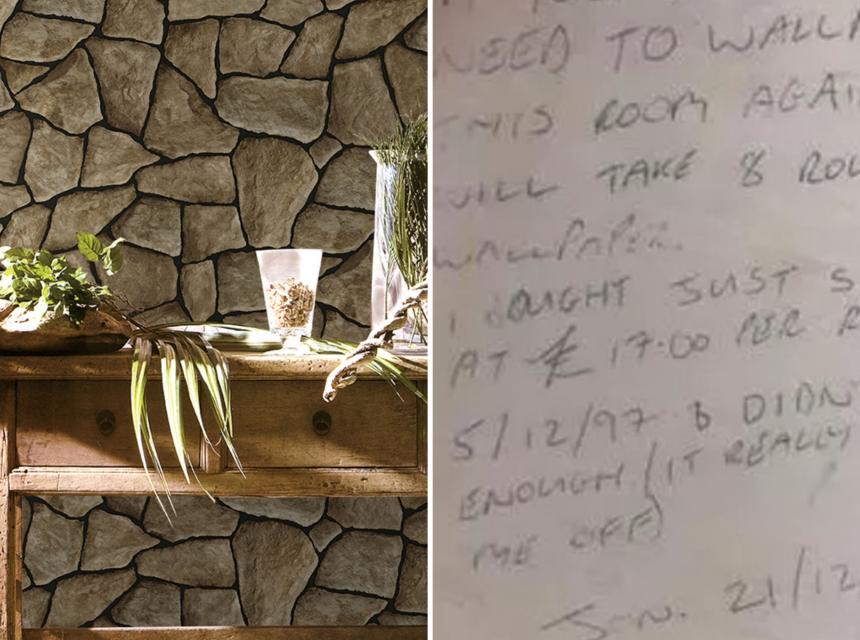 NEED TO WALLP
THIS ROOM AGAI
WILL TAKE 8 ROL
WALLPAPER.
I BOUGHT JUST S
AT £ 17.00 PER R
5/12/97 & DIDN'
ENOUGH (IT REALLY
ME OFF)
JON. 21/12